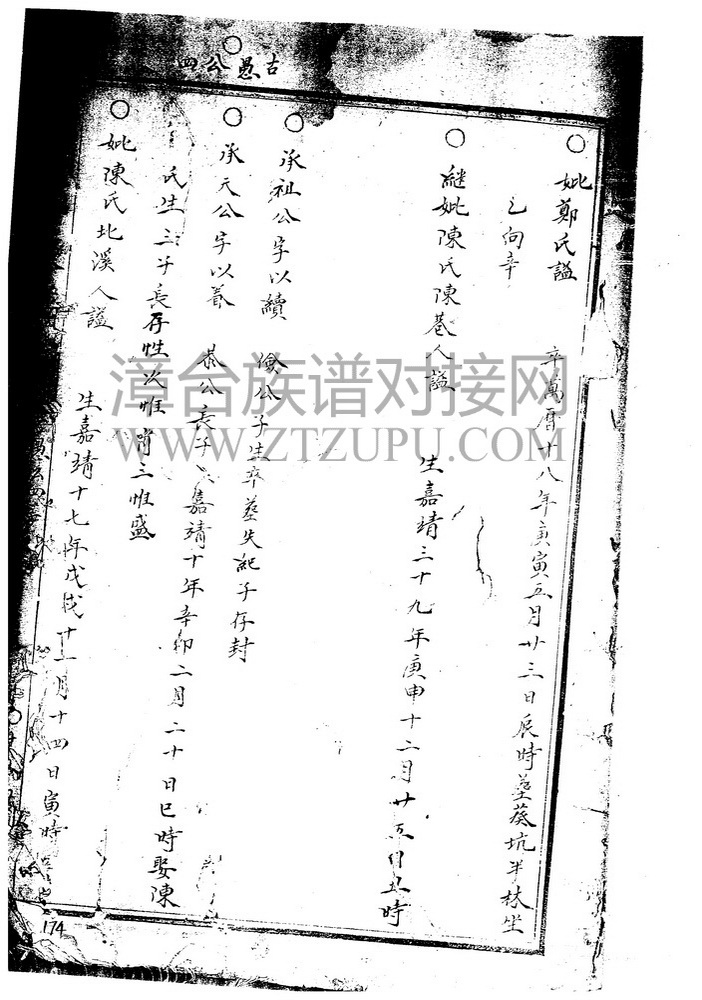 古愚公四
妣鄭氏謚 卒萬曆十八年庚寅五月廿三日辰時墓葵坑半林坐
乙向辛
継妣陳氏陳巷人謚 生嘉靖三十九年庚申十二月廿五日丑時
承祖公字以續 儉公子生卒墓失紀子存封
承天公字以養 恭公長子 嘉靖十年辛卯二月二十日巳時娶陳
氏生三子長存性次惟肖三惟盛
妣陳氏北溪人謚 生嘉靖十七年戊戌十一月十四日寅時
174
漳台族谱对接网
WWW.ZTZUPU.COM